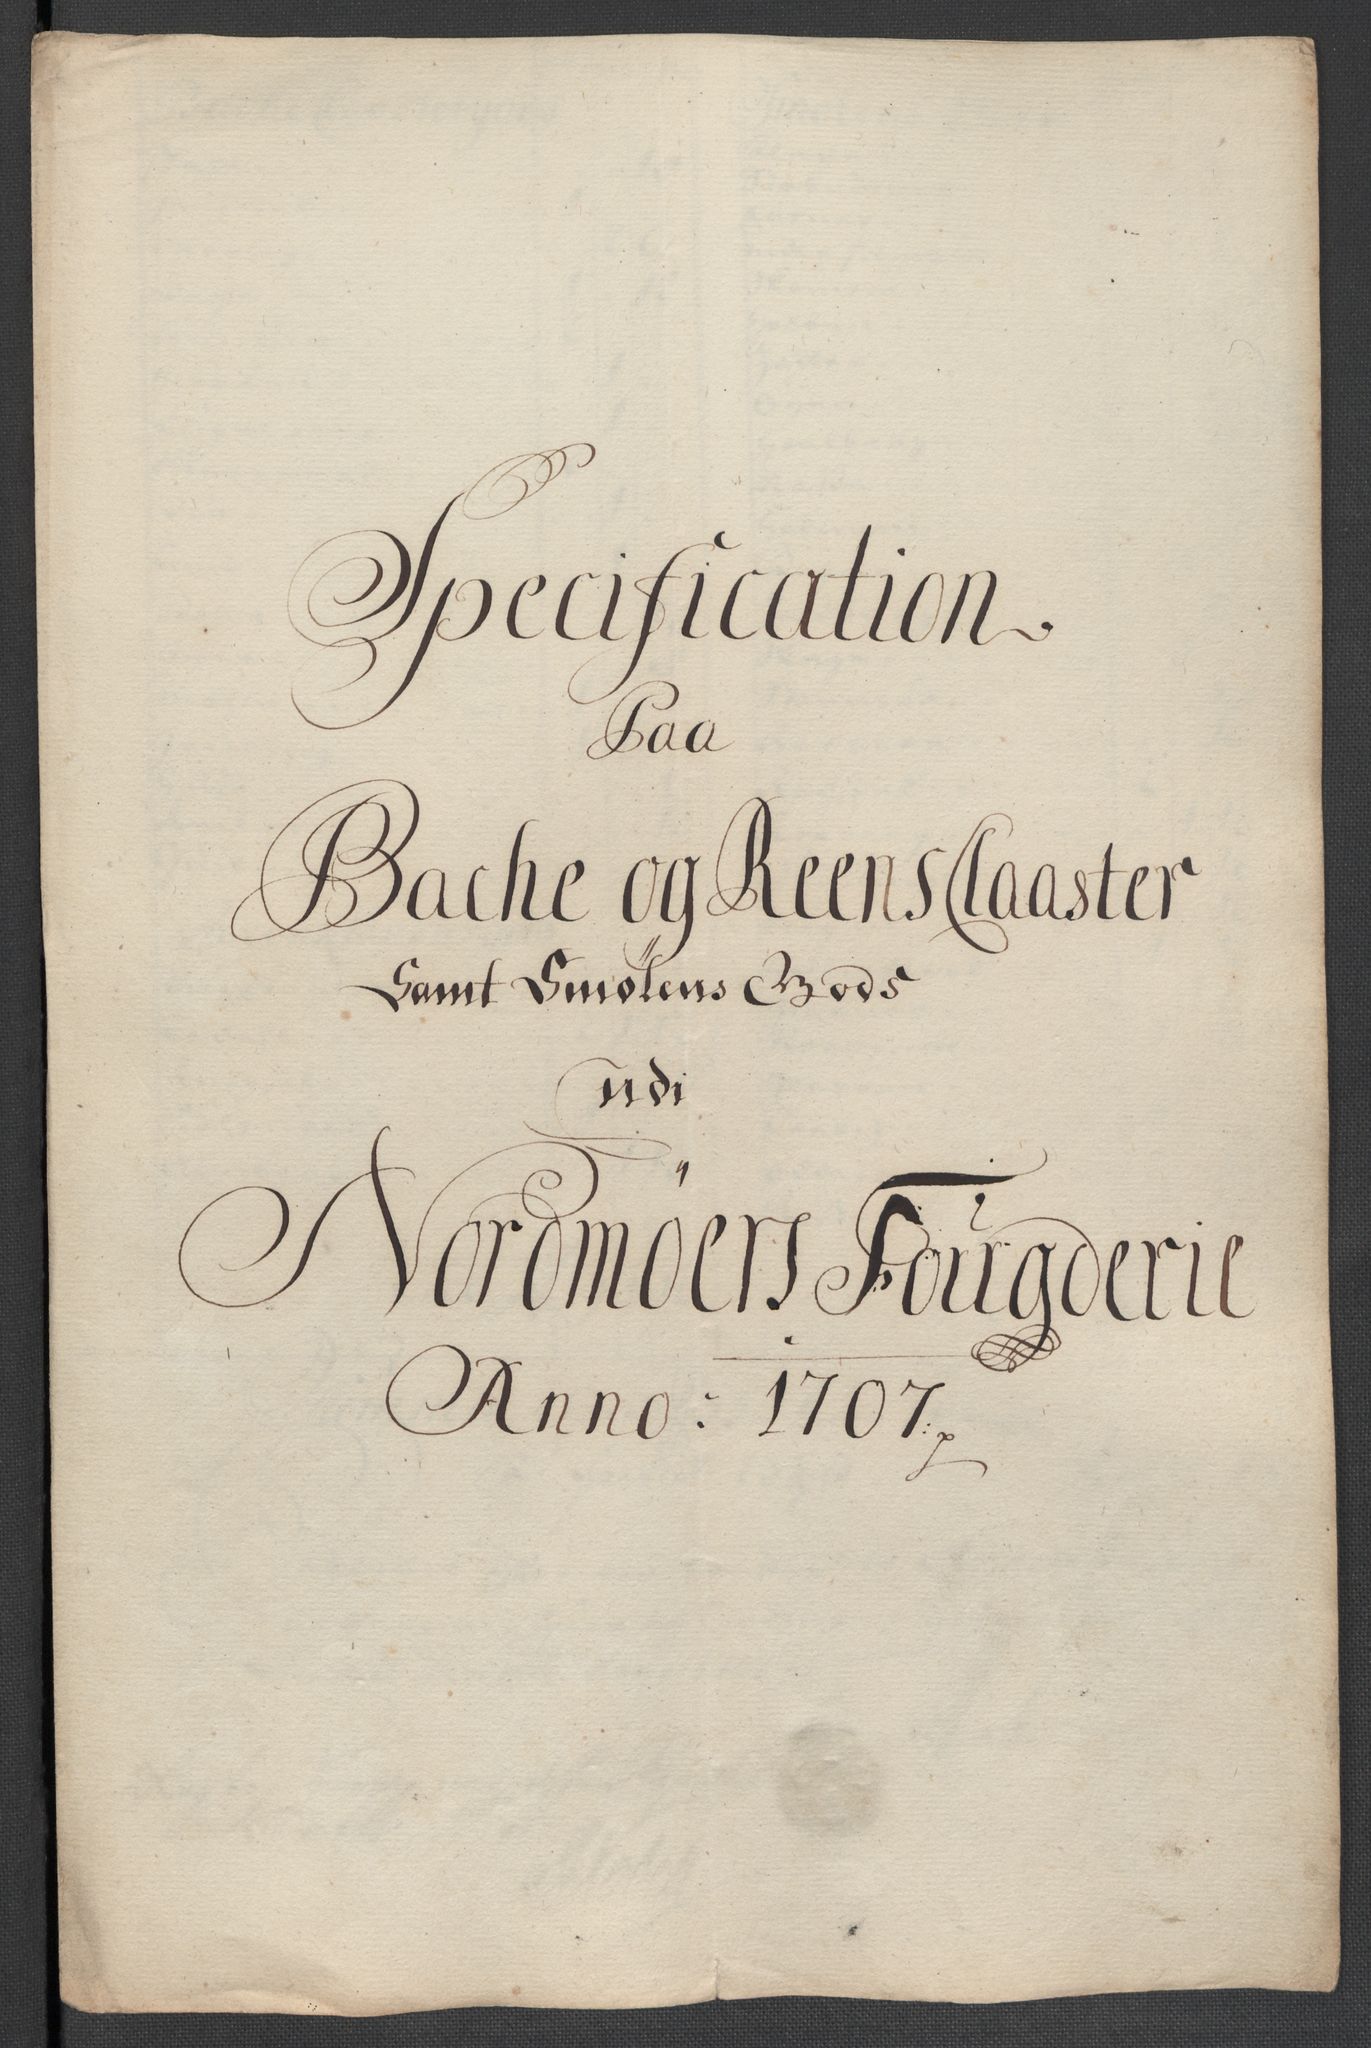 Specification
Paa
Bache og Reens Claaster
Samt Smølens Gods
udi
Nordmöers Fougderie
Anno: 1707